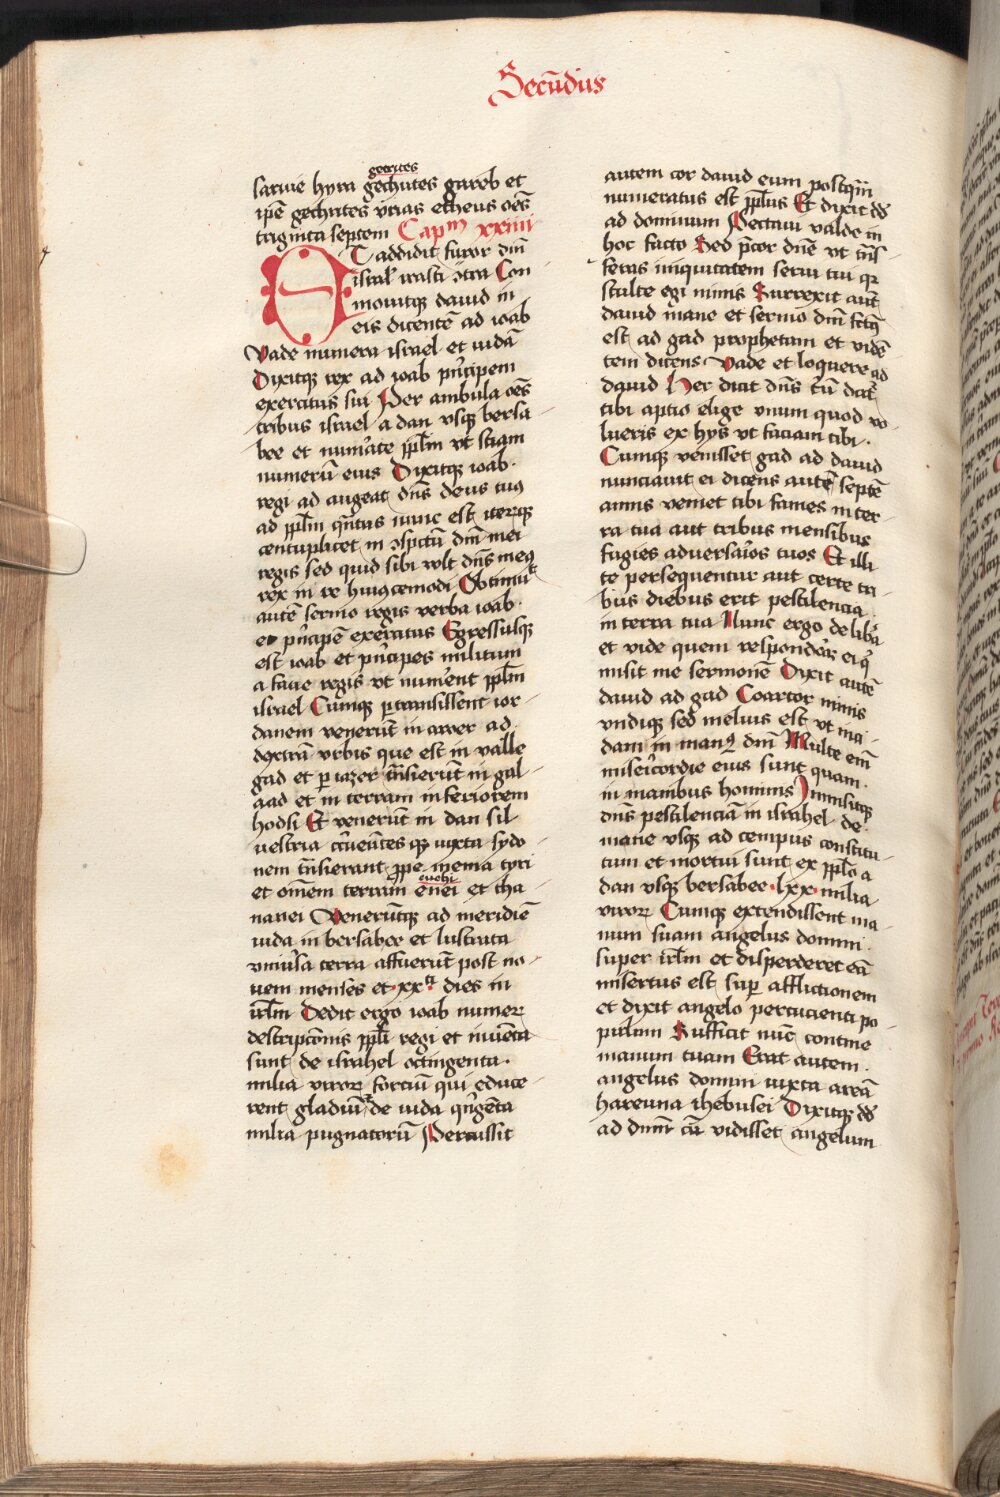 Secūdus
getrites
saruie hyra gethrites gareb et
ip̄e gethrites vrias etheus oēs
triginta septem Capm xxiiii
ET addidit furor dn̄i
israƚ irasci ɔtra Con
mouitqꝫ dauid in
eis dicentē ad ioab
Vade numera israel et iudā
Dixitqꝫ rex ad ioab pͥncipem
exercitus sui Per ambula oēs
tribus israel a dan vsqꝫ bersa
bee et num̄ate ppl̄m vt sciam
numerū eius Dixitqꝫ ioab.
regi ad augeat dn̄s deus tuꝰ
ad ppl̄m qn̄tus nunc est iterqꝫ
centuplicet in ɔspctū dn̄i mei
regis sed quid sibi volt dn̄s meꝰ
rex in re huiꝰcemodi Obtinuit
autē sermo regis verba ioab.
et pͥncipē exercitus Egressusqꝫ
est ioab et pͥncipes militum
a facie regis vt num̄ent ppl̄m
israel Cumqꝫ ptransissent ior-
danem venerūt in aroer ad.
dextrā vrbis que est in valle
gad et p iazer trn̄sierūt in gal-
aad et in terram inferiorem
hodsi Et venerūt in dan sil-
uestria cͥrcuētes qꝫ iuxta sydo-
nem trn̄sierant ꝓpe menia tyri
euehi
et om̄em terram enei et cha-
nanei Venerūtqꝫ ad meridiē
iuda in bersabee et lustrata
vniuͥsa terra affuerūt post no-
uem menses et xx.ti dies in
irl̄m Dedit ergo ioab numeꝝ
descriptōnis ppl̄i regi et inuēta
sunt de israhel octingenta.
milia viroꝝ fortiū qui educe-
rent gladiū de iuda qͥngēta
milia pugnatorū Percussit
autem cor dauid eum postqm̄
numeratus est ppl̄us Et dixit dd̄
ad dominum Peccaui valde in
hoc facto Sed p̄cor dn̄e vt trn̄s-
feras iniquitatem serui tui qꝛ
stulte egi nimis Surrexit aut̄
dauid mane et sermo dn̄i fctꝰ
est ad gad prophetam et vidē
tem dicens Vade et loquere ad
dauid Hec dicit dn̄s triū datͬ
tibi optio elige vnum quod vo-
lueris ex hys vt faciam tibi.
Cumqꝫ venisset gad ad dauid
nunciauit ei dicens autē septē
annis veniet tibi fames in ter-
ra tua aut tribus mensibus
fugies aduersarios tuos Et illi
te persequentur aut certe tri-
bus diebus erit pestilencia.
in terra tua Nunc ergo delibͣa
et vide quem respondeā ei qͥ
misit me sermonē Dixit autē
dauid ad gad Coartor nimis
vndiqꝫ sed melius est vt inci-
dam in manꝰ dn̄i Multe em̄
misericordie eius sunt quam.
in manibus hominis Inmisitqꝫ
dn̄s pestilenciā in israhel de.
mane vsqꝫ ad tempus constitu-
tum et mortui sunt ex ppl̄o a
dan vsqꝫ bersabee lxx milia
viroꝝ Cumqꝫ extendissent ma-
num suam angelus domini.
super irl̄m et disperderet eā
misertus est suꝑ afflictionem
et dixit angelo percucienti po-
pulum Sufficit nūc contine
manum tuam Erat autem.
angelus domini iuxta areā
hareuna ihebusei Dixitqꝫ dd̄
ad dn̄m cū vidisset angelum